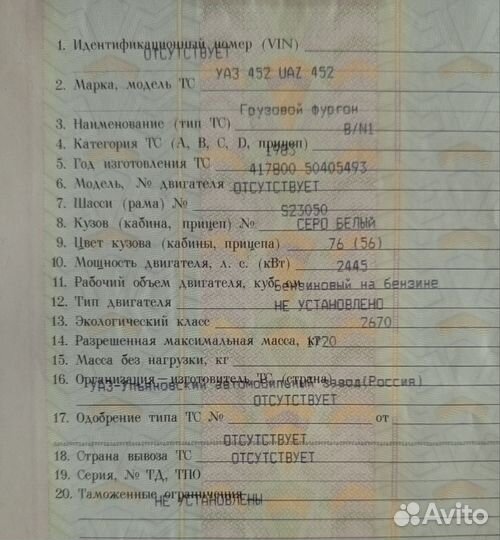 1. Идентификационный номер (VIN)
ОТСУТСТВУЕТ
УАЗ 452 UAZ 452
2. Марка, модель ТС
Грузовой фургон
3. Наименование (тип ТС)
B/N1
4. Категория ТС (А, В, С, D, прицеп)
1985
5. Год изготовления ТС
417800 50405493
6. Модель, № двигателя
ОТСУТСТВУЕТ
7. Шасси (рама) №
S23050
8. Кузов (кабина, прицеп) №
СЕРО БЕЛЫЙ
9. Цвет кузова (кабины, прицепа)
76 (56)
10. Мощность двигателя, л. с. (кВт)
2445
11. Рабочий объем двигателя, куб. см
Бензиновый на бензине
12. Тип двигателя
НЕ УСТАНОВЛЕНО
13. Экологический класс
2670
14. Разрешенная максимальная масса, кг
1720
15. Масса без нагрузки, кг
16. Организация – изготовитель ТС (страна)
УАЗ-Ульяновский автомобильный завод(Россия)
ОТСУТСТВУЕТ
17. Одобрение типа ТС № от
ОТСУТСТВУЕТ
18. Страна вывоза ТС
ОТСУТСТВУЕТ
19. Серия, № ТД, ТПО
20. Таможенные ограничения
НЕ УСТАНОВЛЕНЫ
Avito